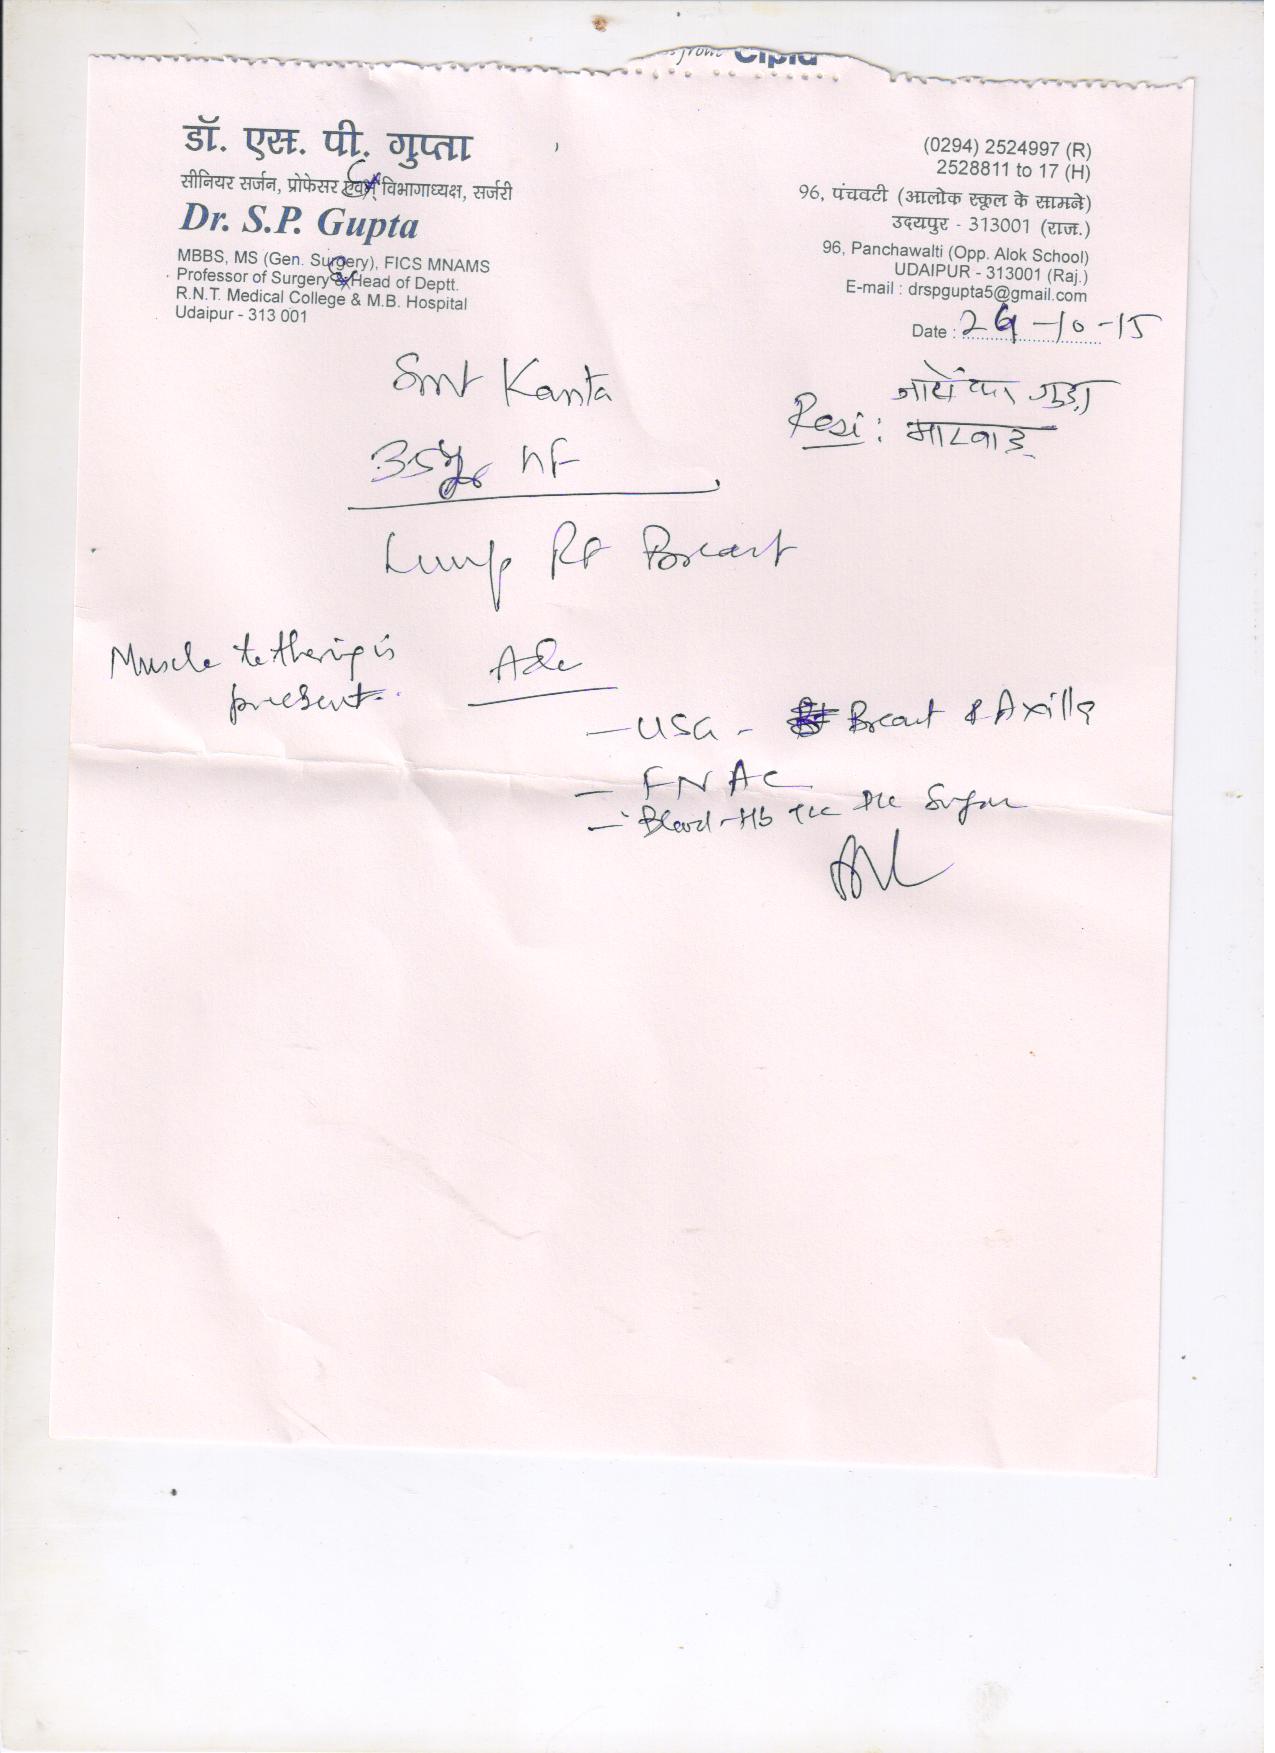 from Cipla
डॉ. एस. पी. गुप्ता
सीनियर सर्जन, प्रोफेसर एवम् विभागाध्यक्ष, सर्जरी
Dr. S.P. Gupta
MBBS, MS (Gen. Surgery), FICS MNAMS
Professor of Surgery & Head of Deptt.
R.N.T. Medical College & M.B. Hospital
Udaipur - 313 001
(0294) 2524997 (R)
2528811 to 17 (H)
96, पंचवटी (आलोक स्कूल के सामने)
उदयपुर - 313001 (राज.)
96, Panchawalti (Opp. Alok School)
UDAIPUR - 313001 (Raj.)
E-mail : drspgupta5@gmail.com
Date : -10-15
Smt Kanta
35yrs HF
Resi : का गुड़ा
मारवाड़
Lump Rt Breast
Muscle tethering is
present..
Adv
- USG - Breast & Axilla
- FNAC
- Blood - Hb TLC DLC Sugar